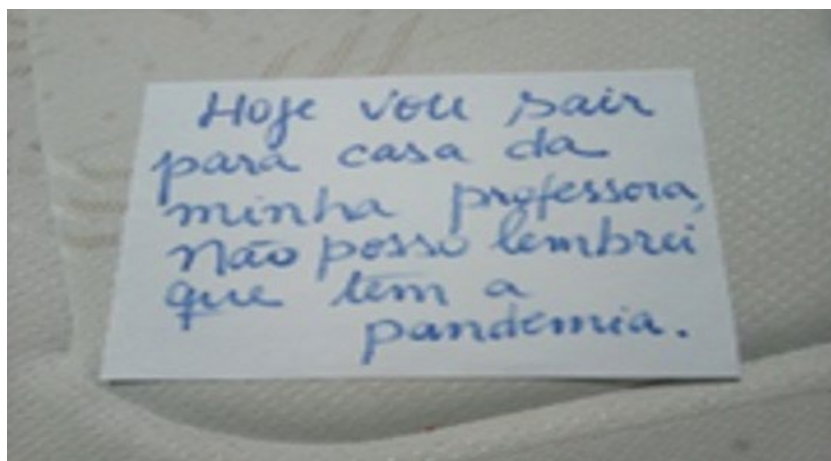 Hoje vou sair
para casa da
minha professora,
não posso lembrei
que tem a
pandemia.